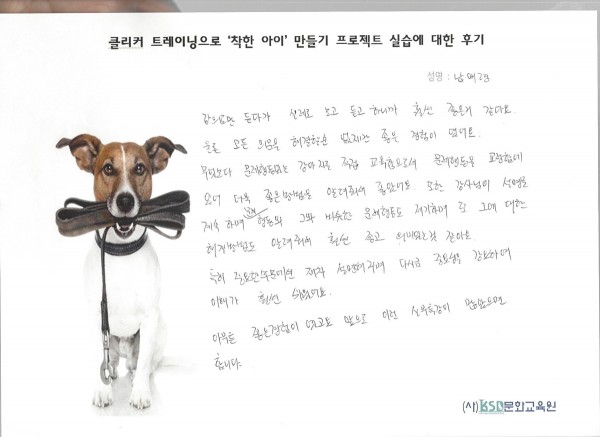 클리커 트레이닝으로 '착한 아이' 만들기 프로젝트 실습에 대한 후기
성명 : 남애경
강의로만 듣다가 실제로 보고 듣고 하니까 훨씬 좋은거 같아요.
물론 모든 의문을 해결할순 없지만 좋은 경험이 됐네요.
무엇보다 문제행동있는 강아지를 직접 교육함으로서 문제행동을 교정함에
있어 더욱 좋은방법을 알려줘서 좋았어요 또한 강사님이 설명을
계속 하며 행동와 그와 비슷한 문제행동도 제기하며 또 그에 대한
해결방법도 알려줘서 훨씬 좋고 의미있는것 같아요
특히 중요한부분에선 재차 설명해주며 다시금 중요성을 강조하여
이해가 훨씬 쉬웠네요.
아무튼 좋은경험이 였고요 앞으로 이런 실목특강이 많았으면
합니다.
(사)KSD문화교육원